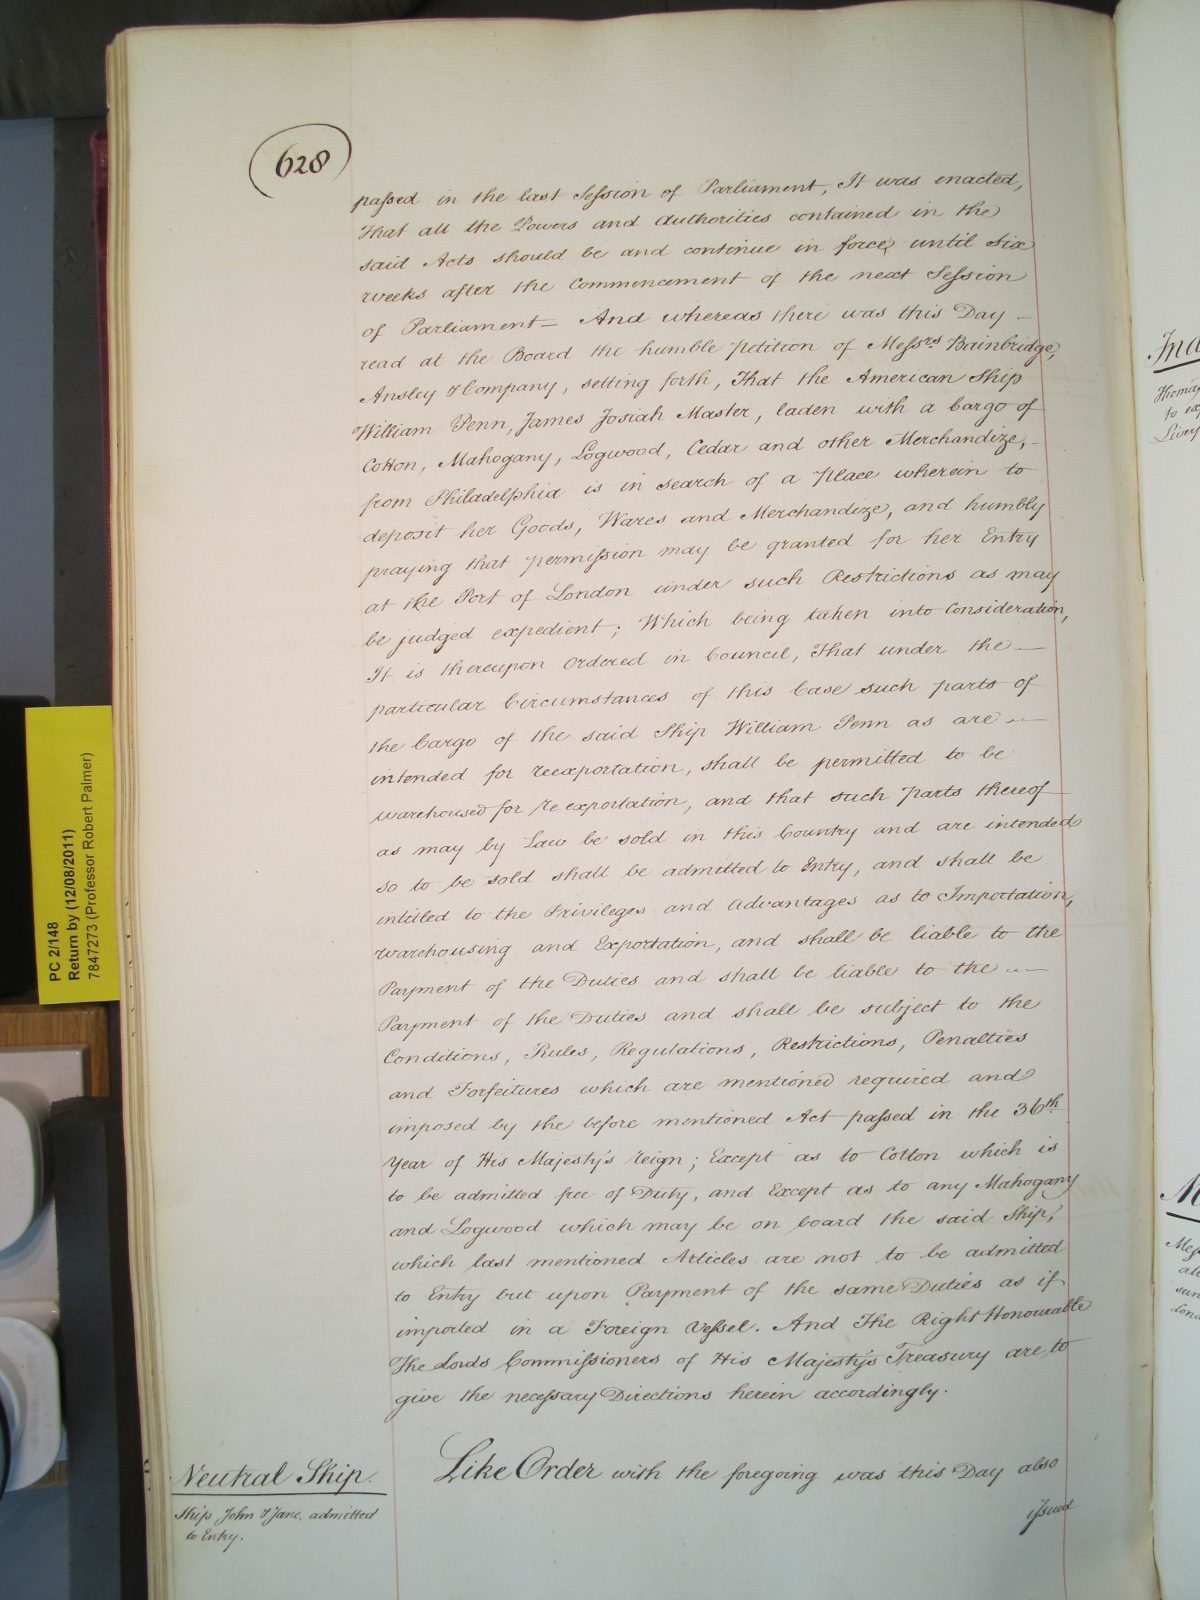 (628)
passed in the last Session of Parliament, It was enacted,
that all the Powers and Authorities contained in the
said Acts should be and continue in force, until six
weeks after the Commencement of the next Session
of Parliament — And whereas there was this Day —
read at the Board the humble Petition of Messrs Bainbridge,
Ansley & Company, setting forth, That the American Ship
William Penn, James Josiah Master, laden with a Cargo of
Cotton, Mahogany, Logwood, Cedar and other Merchandize, -
from Philadelphia is in search of a Place wherein to
deposit her Goods, Wares and Merchandize, and humbly
praying that permission may be granted for her Entry
at the Port of London under such Restrictions as may
be judged expedient; Which being taken into Consideration,
It is thereupon Ordered in Council, That under the —
particular Circumstances of this Case such parts of
the Cargo of the said Ship William Penn as are —
intended for reexportation, shall be permitted to be
warehoused for re exportation, and that such Parts thereof
as may by Law be sold in this Country and are intended
so to be sold shall be admitted to Entry, and shall be
intitled to the Privileges and Advantages as to Importation,
warehousing and Exportation, and shall be liable to the
Payment of the Duties and shall be liable to the —
Payment of the Duties and shall be subject to the
Conditions, Rules, Regulations, Restrictions, Penalties
and Forfeitures which are mentioned required and
imposed by the before mentioned Act passed in the 36th
Year of His Majesty's reign; Except as to Cotton which is
to be admitted free of Duty, and Except as to any Mahogany
and Logwood which may be on board the said Ship,
which last mentioned Articles are not to be admitted
to Entry but upon Payment of the same Duties as if
imported in a Foreign Vessel. And The Right Honourable
The Lords Commissioners of His Majesty's Treasury are to
give the necessary Directions herein accordingly.
Neutral Ship.
Ship John & Jane, admitted
to Entry.
Like Order with the foregoing was this Day also
issued
PC 2/148
Return by (12/08/2011)
7847273 (Professor Robert Palmer)